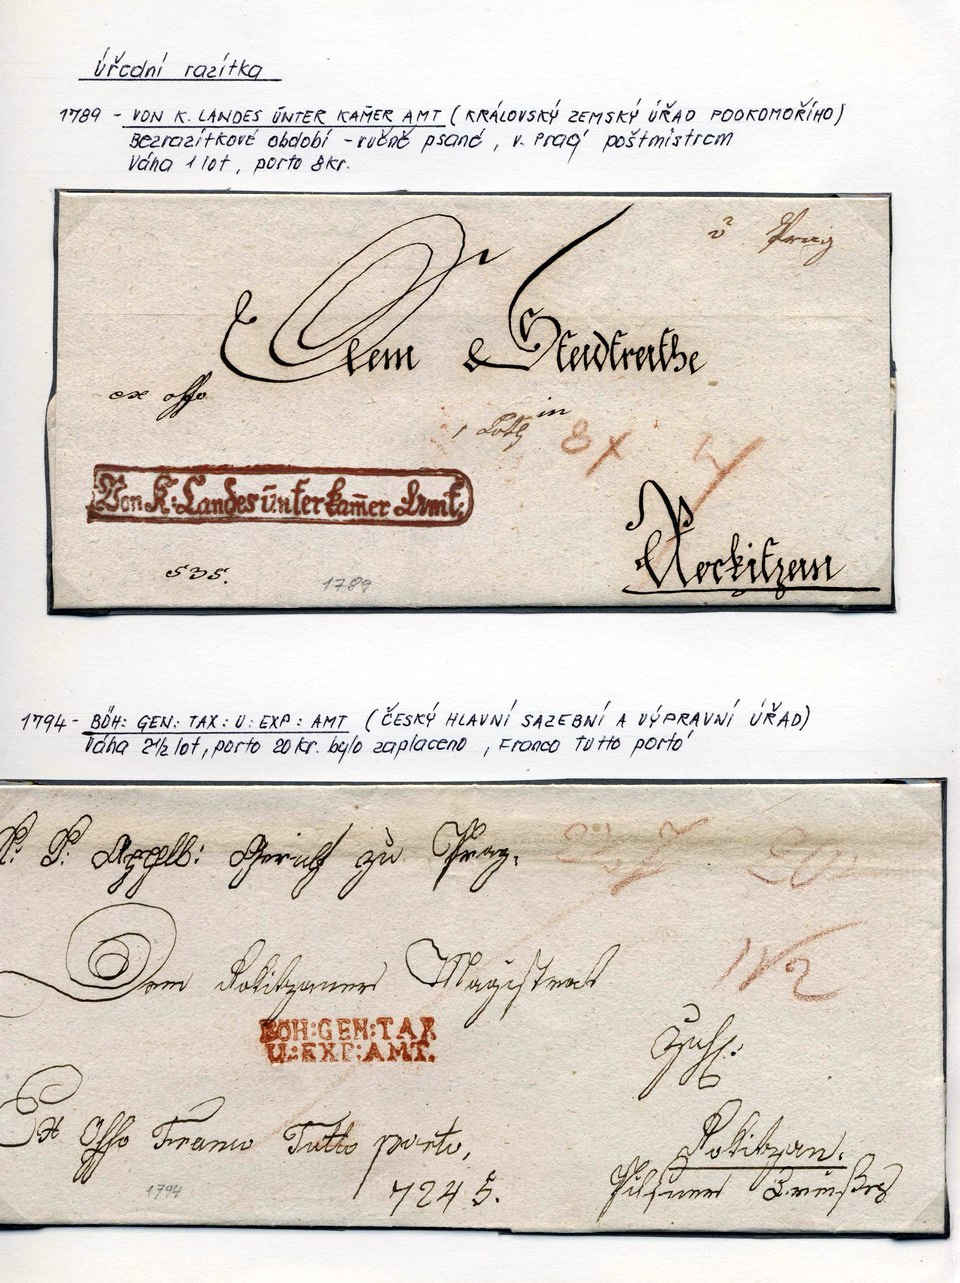 Úřední razítka
1789 - VON K. LANDES ŪNTER KAM̄ER AMT (KRÁLOVSKÝ ZEMSKÝ ÚŘAD PODKOMOŘÍHO)
Bezrazítkové období - ručně psané, v. Prag' poštmistrem
Váha 1 lot, porto 8kr.
v Prag
Dem Stadtrathe
ex offo
in
1 Loth
8x
Von K: Landes ūnter kam̄er Amt:
Rockitzan
535.
1789
1794 - BÖH: GEN: TAX: U: EXP: AMT (ČESKÝ HLAVNÍ SAZEBNÍ A VÝPRAVNÍ ÚŘAD)
Váha 2½ lot, porto 20kr. bylo zaplaceno, 'Franco Tutto porto'
K: K: Appell: Gericht zu Prag.
Dem Rokitzaner Magistrat
BÖH:GEN:TAX
U:EXP:AMT.
Ex Offo Franco Tutto porto,
Rokitzan.
1794
7245.
Pilsner Kreises